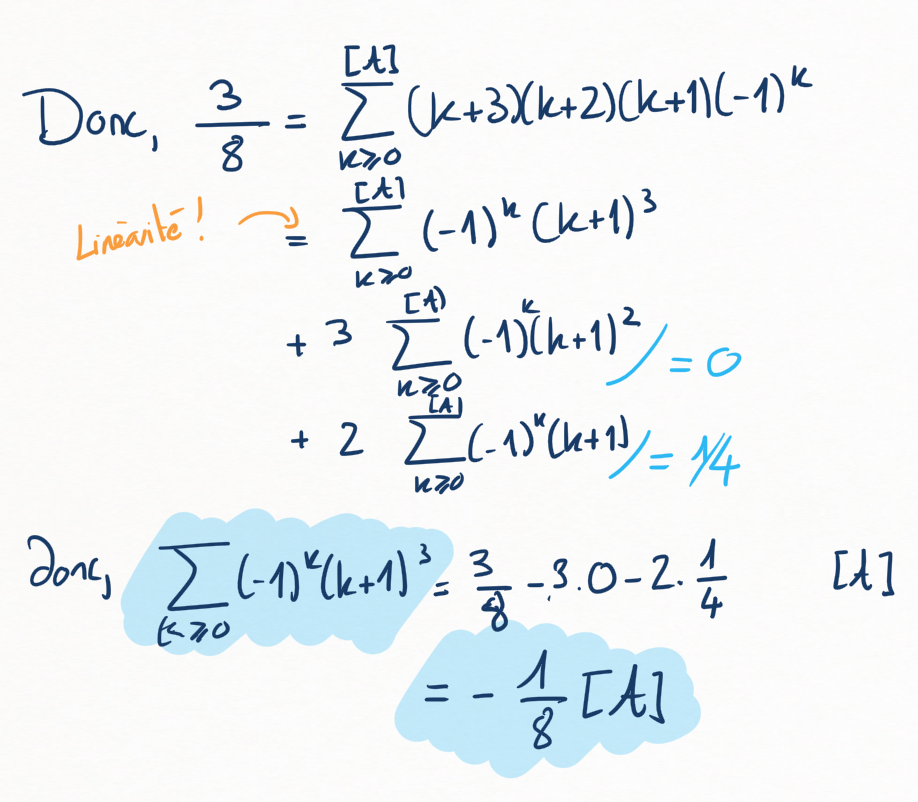 Donc, 3/8 = [A] ∑ k⩾0 (k+3)(k+2)(k+1)(-1)^k
Linéarité ! = [A] ∑ k⩾0 (-1)^k (k+1)^3
+ 3 [A] ∑ k⩾0 (-1)^k (k+1)^2 = 0
+ 2 [A] ∑ k⩾0 (-1)^k (k+1) = 1/4
donc, ∑ k⩾0 (-1)^k (k+1)^3 = 3/8 - 3.0 - 2. 1/4 [A]
= - 1/8 [A]